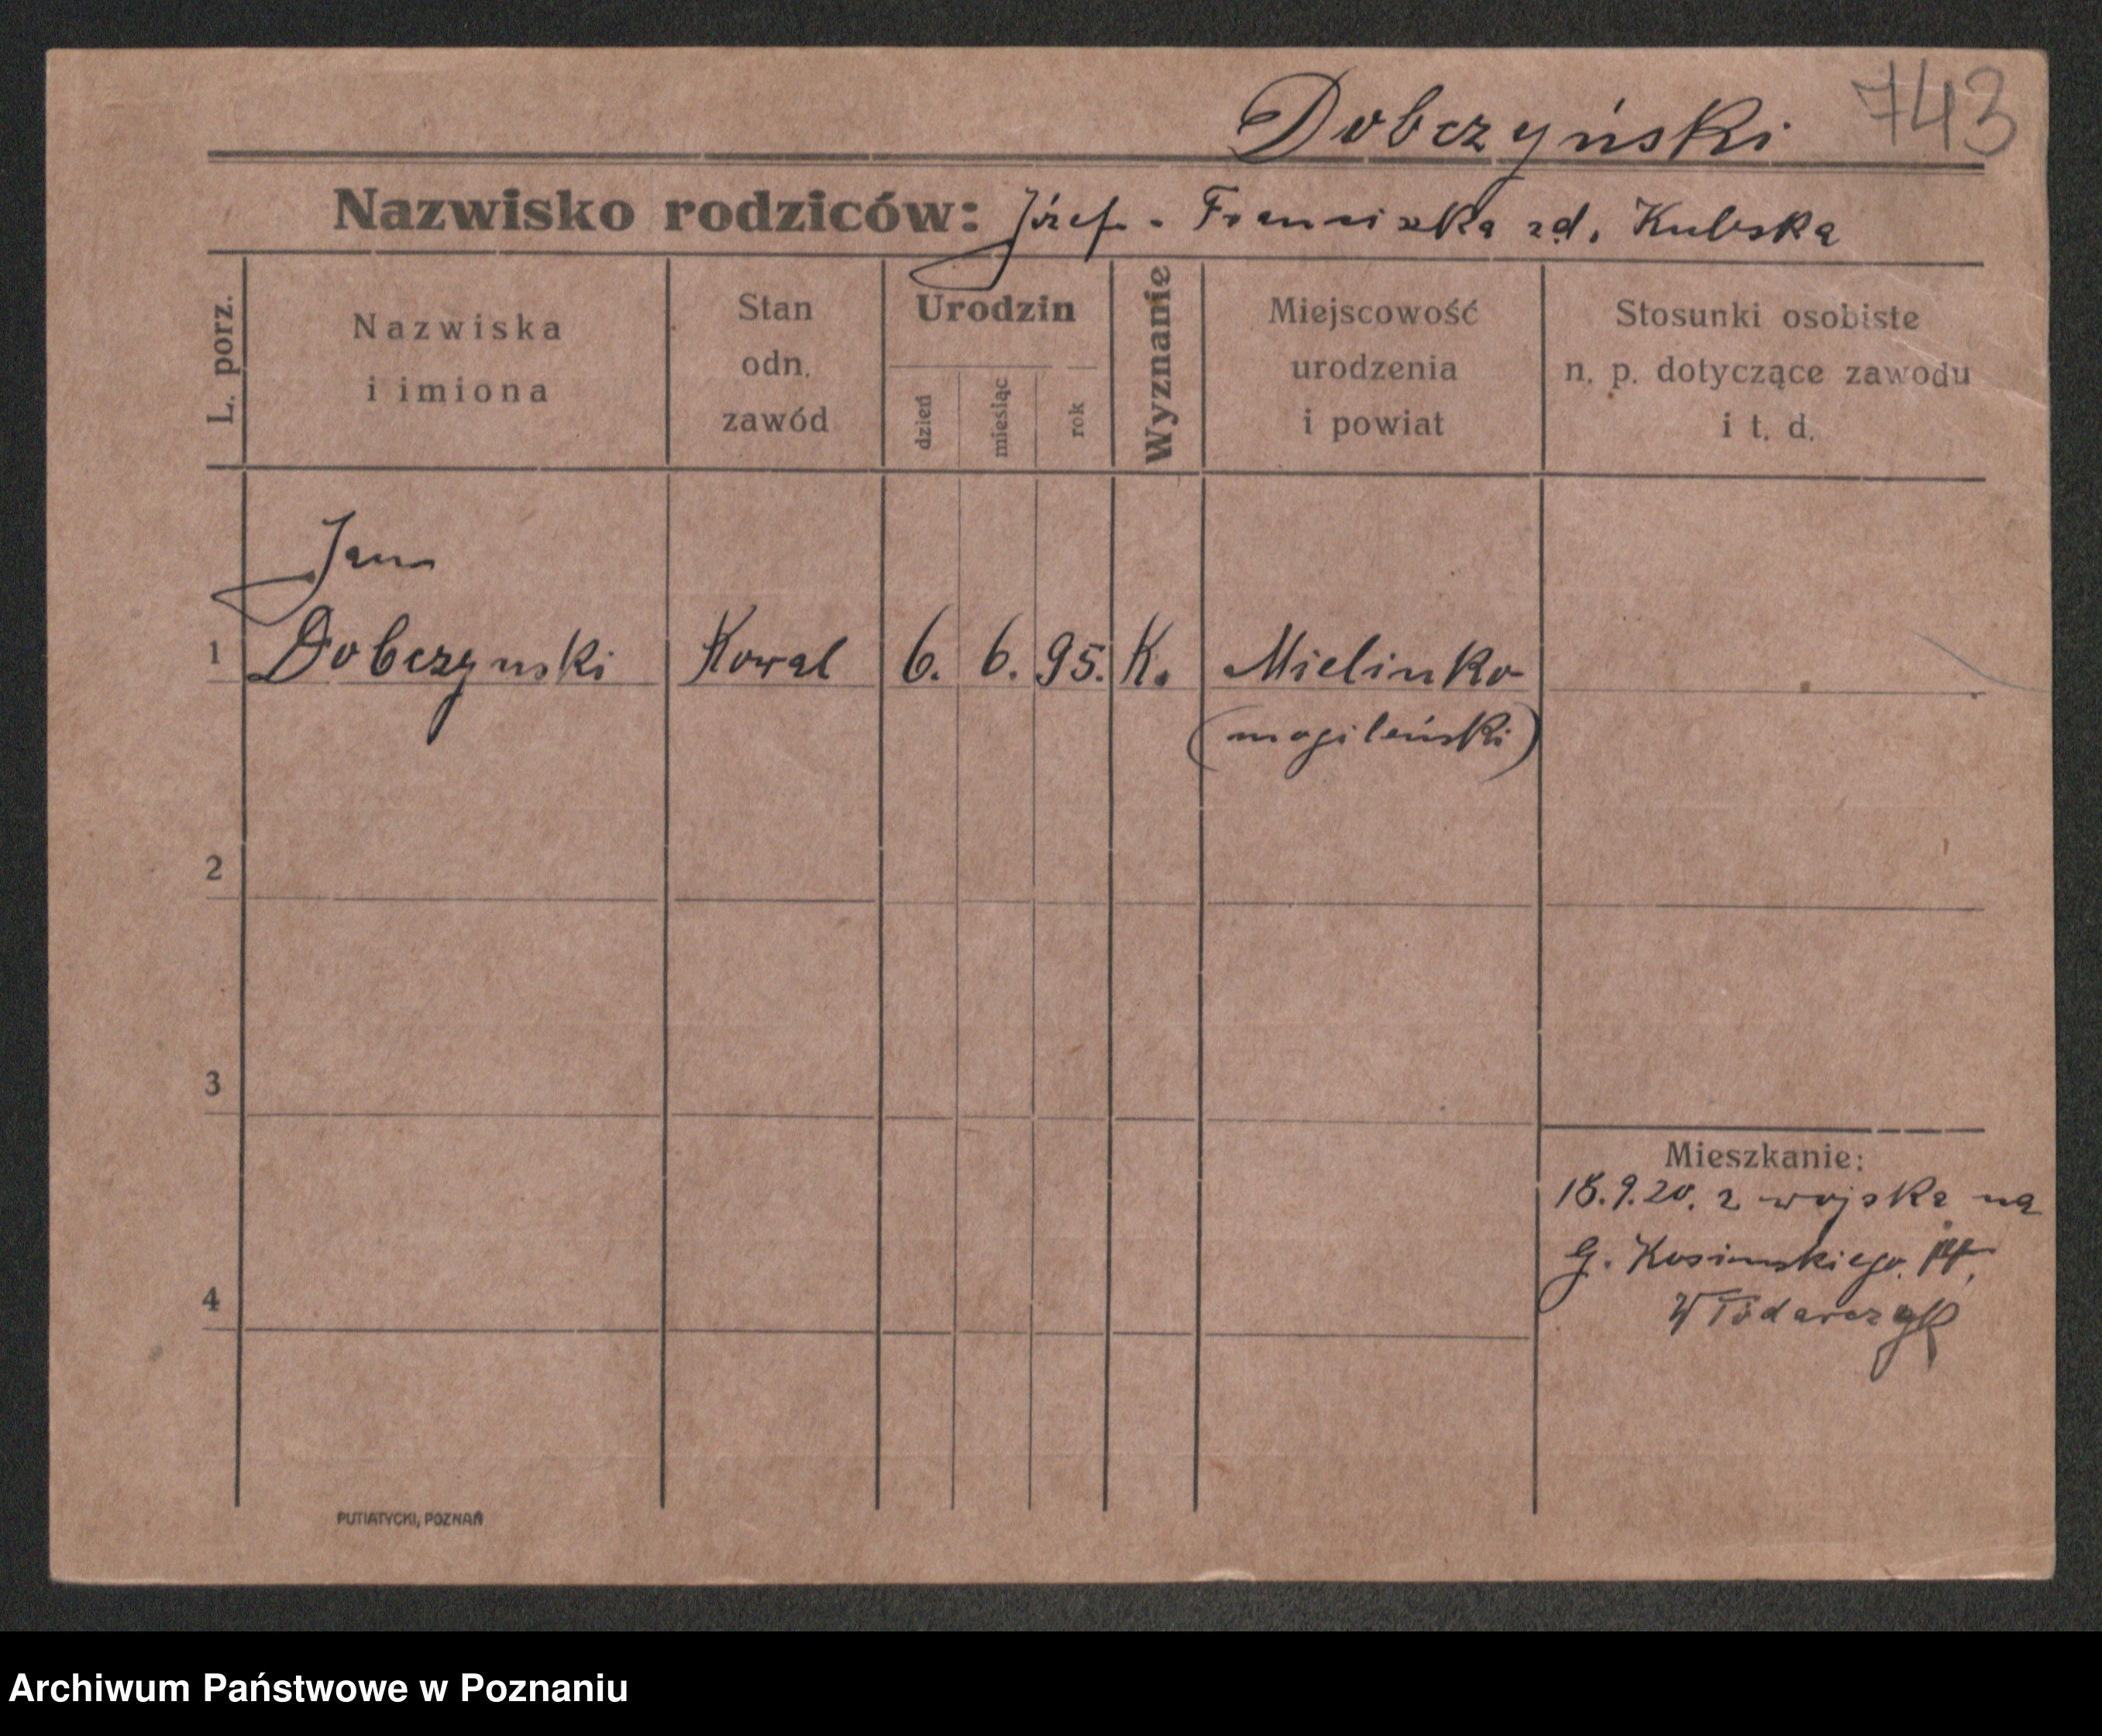 Dobczyński 743
Nazwisko rodziców: Józef - Franciszka zd. Kubska
L. porz.
Nazwiska
i imiona
Stan
odn.
zawód
Urodzin
dzień
miesiąc
rok
Wyznanie
Miejscowość
urodzenia
i powiat
Stosunki osobiste
n. p. dotyczące zawodu
i t. d.
Jan
1 Dobczynski Kowal 6. 6. 95. K. Mielinko
(mogileński)
2
3
4
Mieszkanie:
18.9.20. z wojska na
G. Kosinskiego
Włodarczyk
PUTIATYCKI, POZNAŃ
Archiwum Państwowe w Poznaniu